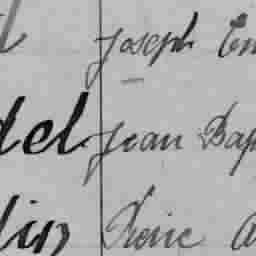 Joseph Em
del Jean Bap
lin Pierre A